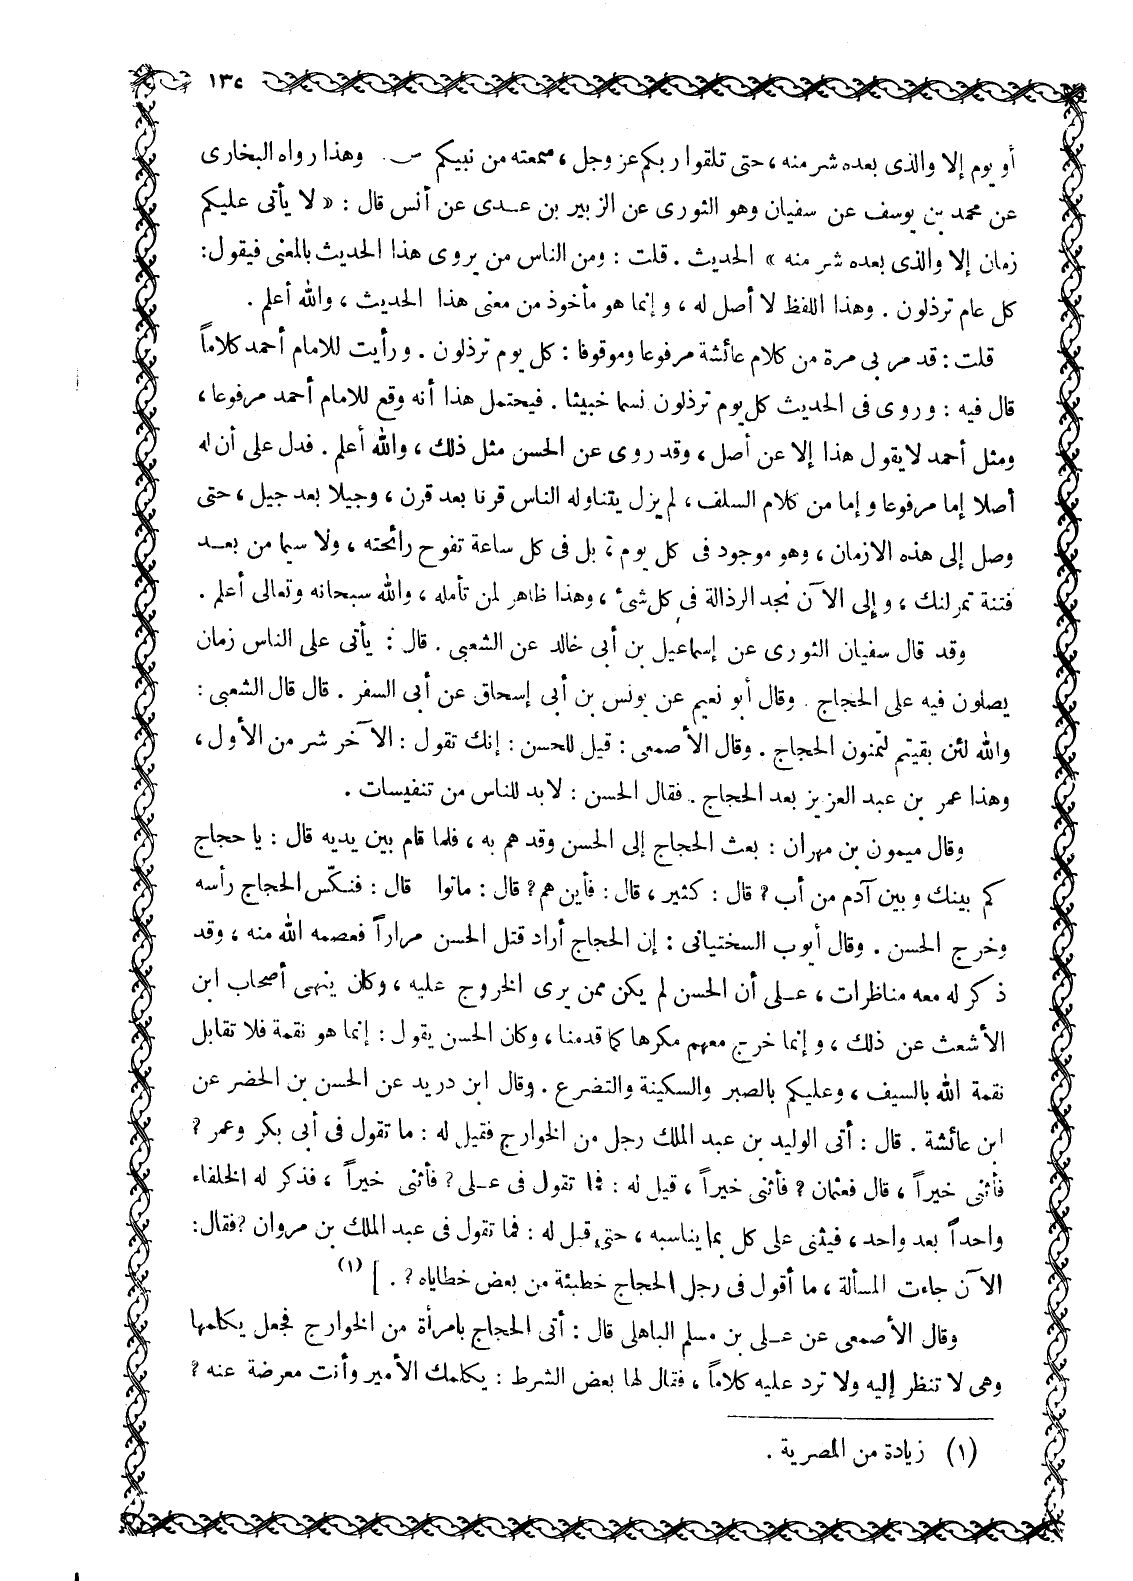 ١٣٥
أو يوم إلا والذى بعده شر منه ، حتى تلقوا ربكم عز وجل ، سمعته من نبيكم ص . وهذا رواه البخارى
عن محمد بن يوسف عن سفيان وهو الثورى عن الزبير بن عدى عن أنس قال : « لا يأتى عليكم
زمان إلا والذى بعده شر منه » الحديث . قلت : ومن الناس من يروى هذا الحديث بالمعنى فيقول :
كل عام ترذلون . وهذا اللفظ لا أصل له ، وإنما هو مأخوذ من معنى هذا الحديث ، والله أعلم .
قلت : قد مر بى مرة من كلام عائشة مرفوعا وموقوفا : كل يوم ترذلون . ورأيت للامام أحمد كلاماً
قال فيه : وروى فى الحديث كل يوم ترذلون نسما خبيثا . فيحتمل هذا أنه وقع للامام أحمد مرفوعا ،
ومثل أحمد لا يقول هذا إلا عن أصل ، وقد روى عن الحسن مثل ذلك ، والله أعلم . فدل على أن له
أصلا إما مرفوعا وإما من كلام السلف ، لم يزل يتناوله الناس قرنا بعد قرن ، وجيلا بعد جيل ، حتى
وصل إلى هذه الازمان ، وهو موجود فى كل يوم ، بل فى كل ساعة تفوح رائحته ، ولا سيما من بعد
فتنة تمرلنك ، وإلى الآن نجد الرذالة فى كل شئ ، وهذا ظاهر لمن تأمله ، والله سبحانه وتعالى أعلم .
وقد قال سفيان الثورى عن إسماعيل بن أبى خالد عن الشعبى . قال : يأتى على الناس زمان
يصلون فيه على الحجاج . وقال أبو نعيم عن يونس بن أبى إسحاق عن أبى السفر . قال قال الشعبى :
والله لئن بقيتم لتمنون الحجاج . وقال الأصمعى : قيل للحسن : إنك تقول : الآخر شر من الأول ،
وهذا عمر بن عبد العزيز بعد الحجاج . فقال الحسن : لابد للناس من تنفيسات .
وقال ميمون بن مهران : بعث الحجاج إلى الحسن وقد هم به ، فلما قام بين يديه قال : يا حجاج
كم بينك وبين آدم من أب ? قال : كثير ، قال : فأين هم ? قال : ماتوا قال : فنكّس الحجاج رأسه
وخرج الحسن . وقال أيوب السختيانى : إن الحجاج أراد قتل الحسن مراراً فعصمه الله منه ، وقد
ذكر له معه مناظرات ، على أن الحسن لم يكن ممن يرى الخروج عليه ، وكان ينهى أصحاب ابن
الأشعث عن ذلك ، وإنما خرج معهم مكرها كما قدمنا ، وكان الحسن يقول : إنما هو نقمة فلا تقابل
نقمة الله بالسيف ، وعليكم بالصبر والسكينة والتضرع . وقال ابن دريد عن الحسن بن الخضر عن
ابن عائشة . قال : أتى الوليد بن عبد الملك رجل من الخوارج فقيل له : ما تقول فى أبى بكر وعمر ?
فأثنى خيراً ، قال فعثمان ? فأثنى خيراً ، قيل له : فما تقول فى على ? فأثنى خيراً ، فذكر له الخلفاء
واحداً بعد واحد ، فيثنى على كل بما يناسبه ، حتى قيل له : فما تقول فى عبد الملك بن مروان ? فقال :
الآن جاءت المسألة ، ما أقول فى رجل الحجاج خطيئة من بعض خطاياه ? . ] (١)
وقال الأصمعى عن على بن مسلم الباهلى قال : أتى الحجاج بامرأة من الخوارج فجعل يكلمها
وهى لا تنظر إليه ولا ترد عليه كلاماً ، فقال لها بعض الشرط : يكلمك الأمير وأنت معرضة عنه ?
(١) زيادة من المصرية .